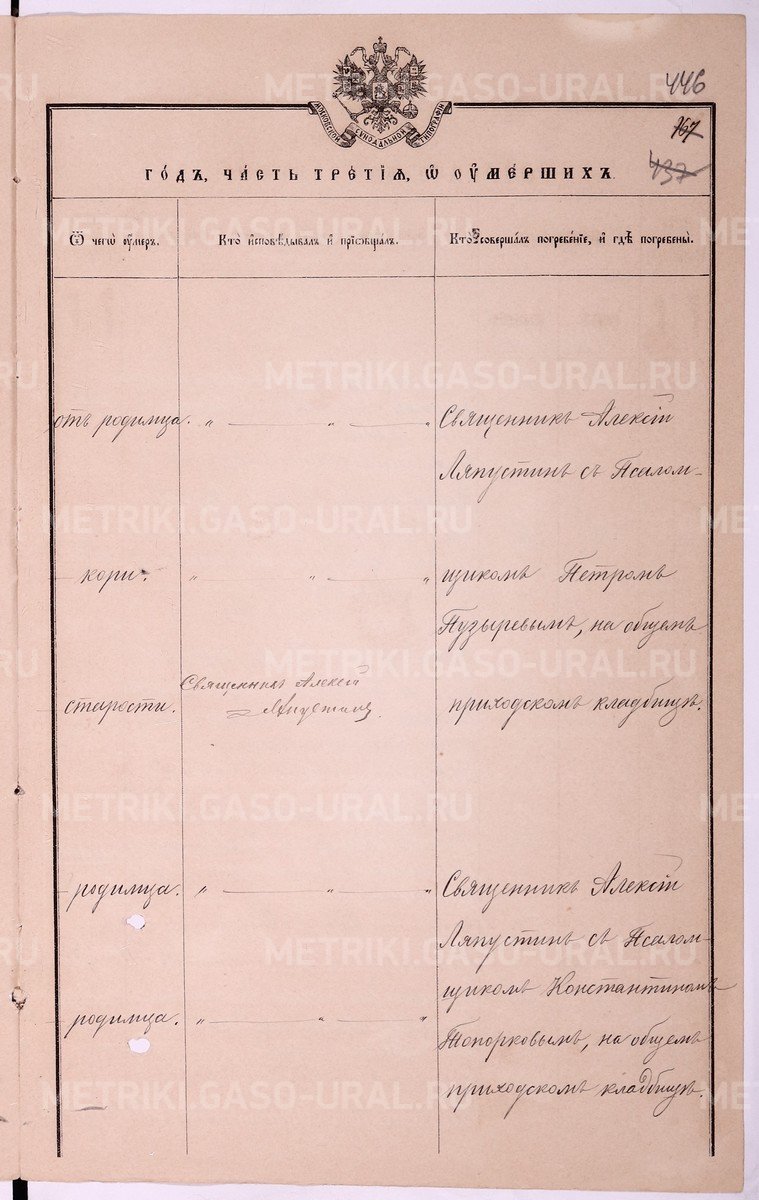 446
МОСКОВСКОЙ СѴНОДАЛЬНОЙ ТИПОГРАФІИ
167
437
ГО́ДЪ, ЧА́СТЬ ТРЕ́ТІѦ, Ѡ ОУ҆МЕ́РШИХЪ
Ѿ чегѡ̀ ᲂу҆́меръ.
Кто̀ и҆сповѣ́дывалъ и҆ прїѡбща́лъ.
Кто̀ совершáлъ погребéнїе, и҆ гдѣ̀ погребены̀.
отъ родимца. „ — „ — „
Священникъ Алексій
Ляпустинъ съ Псалом-
— кори. „ „ — „
щикомъ Петромъ
Пузыревымъ, на общемъ
— старости.
Священникъ Алексій
Ляпустинъ.
приходскомъ кладбищѣ.
— родимца. „ — „ — „
Священникъ Алексій
Ляпустинъ съ Псалом-
щикомъ Константиномъ
— родимца. „ — „ — „
Топорковымъ, на общемъ
приходскомъ кладбищѣ.
METRIKI.GASO-URAL.RU